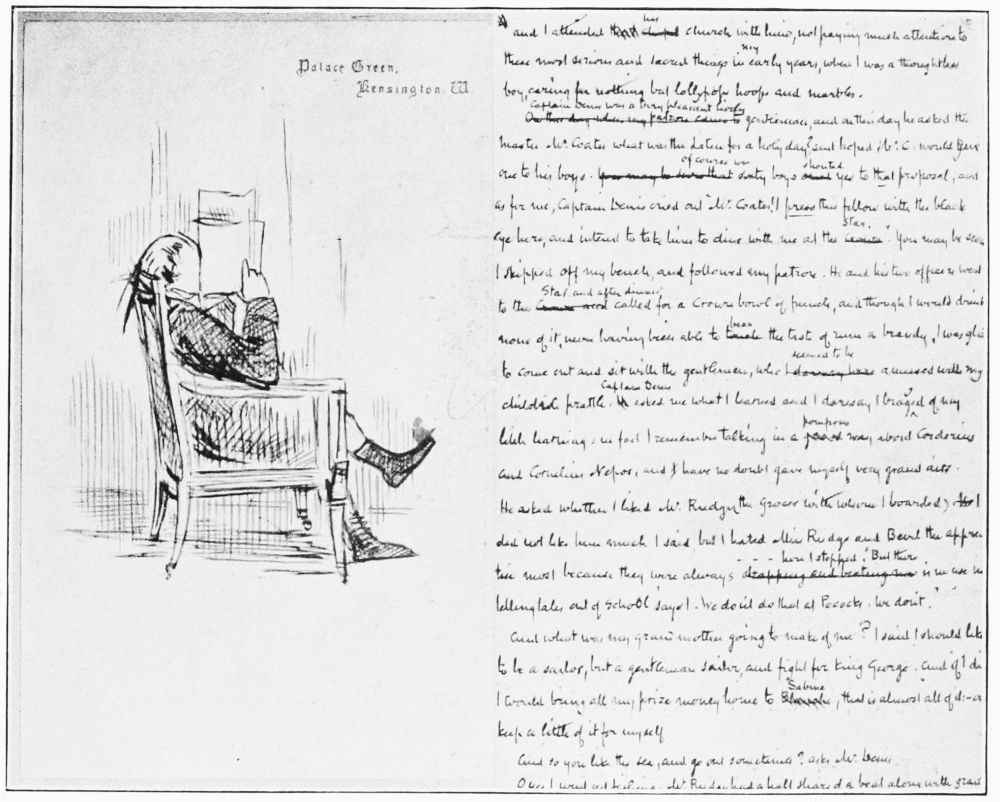 Palace Green,
Kensington. W.
his
and I attended that chapel church with him, not paying much attention to
my
these most serious and sacred things in early years, when I was a thoughtless
boy, caring for nothing but lollypops hoops and marbles.
Captain Denis was a very pleasant lively
On this day when my patron came to gentleman, and on this day he asked the
master Mr. Coates what was the Laten for a holy day? and hoped Mr. C. would give
of course we shouted
one to his boys. you may be sure that sixty boys yes to that proposal, and
as for me, Captain Denis cried out Mr. Coates! I press this fellow with the black
Star.
eye here, and intend to take him to dine with me at the. You may be sure
I skipped off my bench, and followed my patron. He and his two officers went
Star and after dinner
to the Crown and called for a Crown bowl of punch, and though I would drink
bear
none of it, never having been able to touch the taste of rum or brandy, I was glad
seemed to be
to come out and sit with the gentlemen, who I amused with my
Captain Denis
childish prattle. He asked me what I learned and I daresay I bragged of my
pompous
little learning: in fact I remember talking in a grand way about Corderius
and Cornelius Nepos, and I have no doubt gave myself very grand airs.
He asked whether I liked Mr. Rudge, the Grocer with whom I boarded? I
did not like him much I said, but I hated Miss Rudge and Bevil the appren
- - - here I stopped. But there
tice most because they were always slapping and beating me is no use in
telling tales out of School says I. We don't do that at Pococks. We don't.
And what was my Grandmother going to make of me? I said I should like
to be a sailor, but a gentleman sailor, and fight for King George. And if I did
Sabine
I would bring all my prize money home to Blanche, that is almost all of it - or
keep a little of it for myself
And so you like the sea, and go out sometimes? asks Mr. Denis
O yes I went out fishing. Mr. Rudge had a half share of a boat along with grand